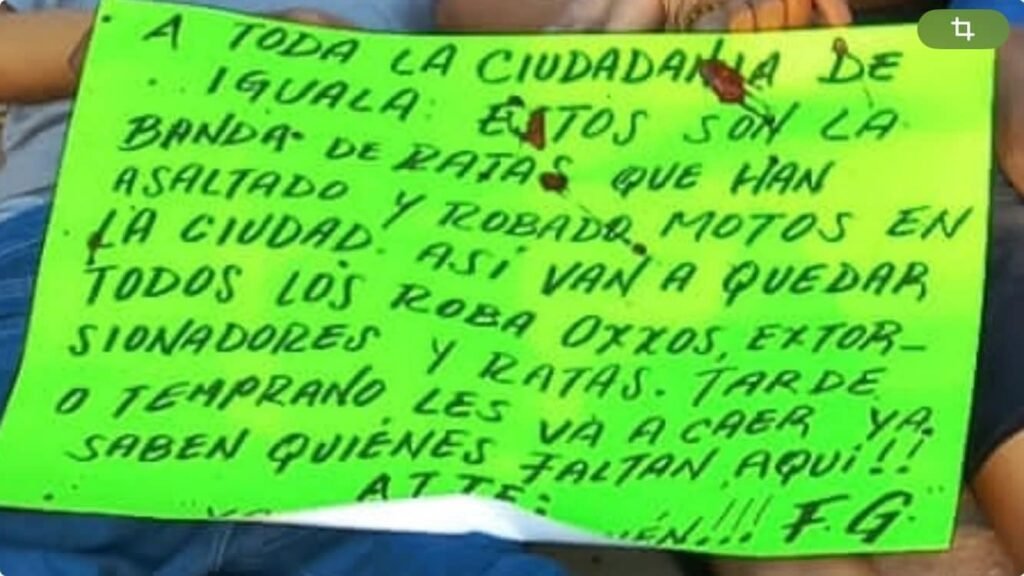 A TODA LA CIUDADANIA DE
IGUALA. ÉSTOS SON LA
BANDA DE RATAS QUE HAN
ASALTADO Y ROBADO MOTOS EN
LA CIUDAD. ASÍ VAN A QUEDAR
TODOS LOS ROBA OXXOS, EXTOR-
SIONADORES Y RATAS. TARDE
O TEMPRANO LES VA A CAER YA
SABEN QUIÉNES FALTAN AQUÍ!!
ATTE:
!!! F.G.